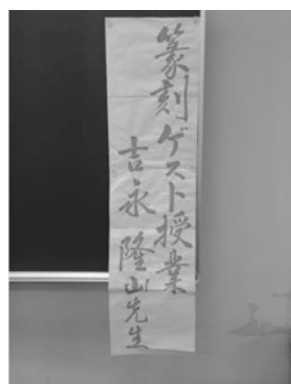 篆刻ゲスト授業
吉永隆山先生